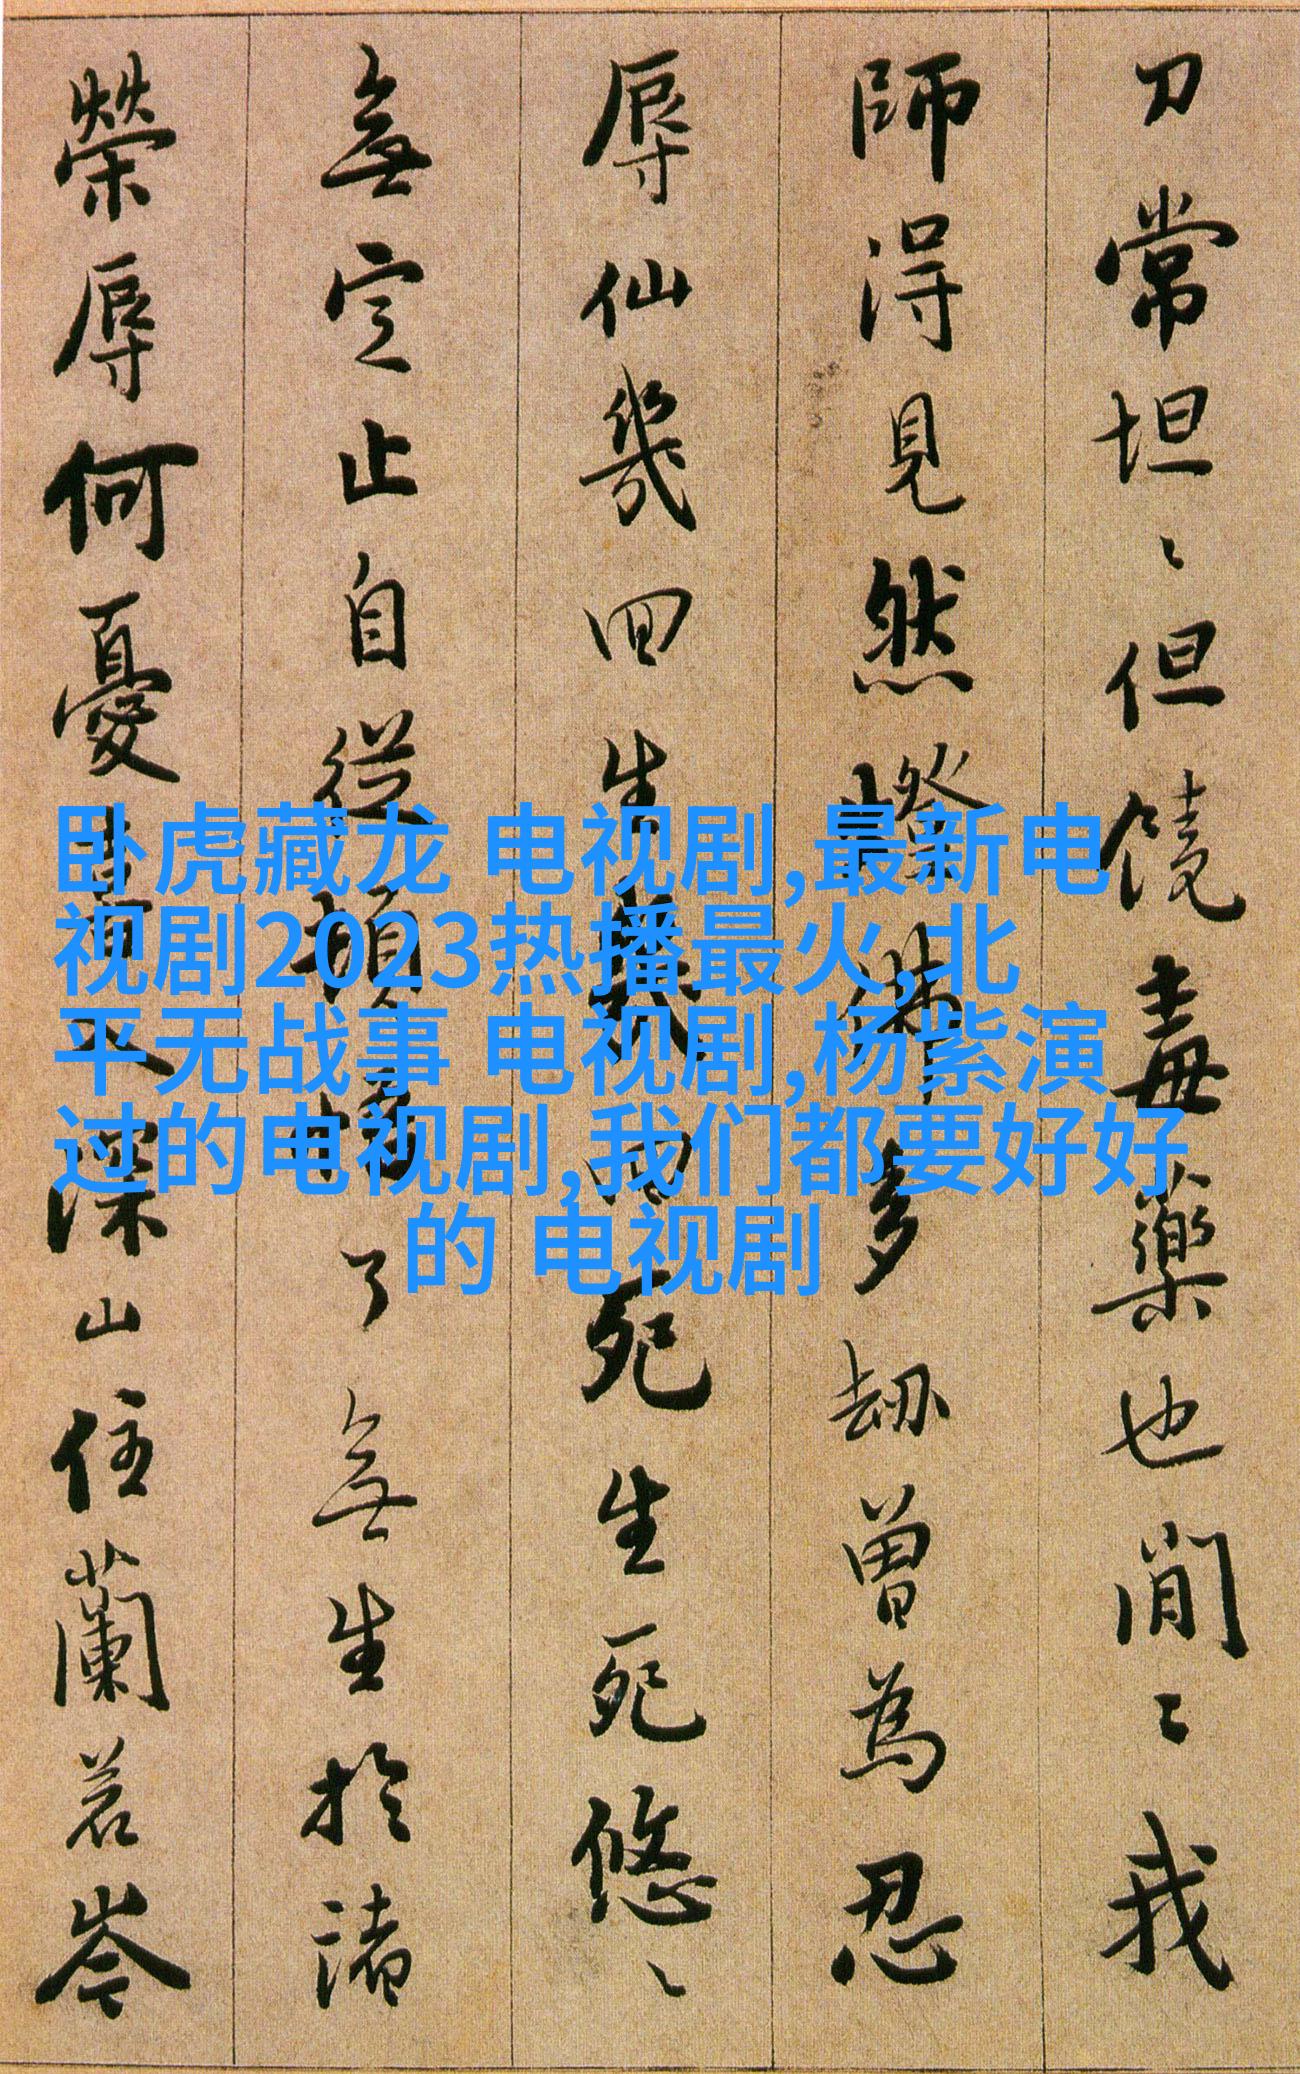 刀常坦〻但饒毒藥也閒〻我
師得見然燈佛多劫曾為忍
辱仙幾回生幾回死生死悠〻
無定止自從頓悟了無生於諸
榮辱何憂喜入深山住蘭若岑
卧虎藏龙 电视剧,最新电
视剧2023热播最火,北
平无战事 电视剧,杨紫演
过的电视剧,我们都要好好
的 电视剧